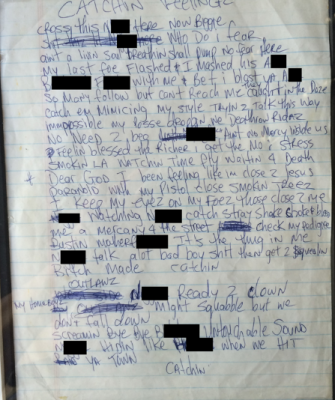 CATCHIN FEELINGZ
Cross this N Here Now Biggie
Who Do i fear
aint a livin soul breathin shall pump No fear Here
My last foe Flashed & I mashed his A
with me & Bet i blast yo A
So Many follow but can't Reach me caught in the Daze
catch em Mimicing my style Tryin 2 talk this way
immpossible my posse deep in we Deathrow Ridaz
No Need 2 beg Ain't no Mercy inside us
Feelin blessed the Richer i get the No i stress
Smokin LA watchin Time fly waitin 4 Death
+ Dear God I been feeling like im close 2 Jesus
paranoid with my pistol close smokin Treez
I keep my eyez on my Foez those close 2 me
N Watching N catch stray shotz
met a mercany 4 the street check my pedigree
Bustin mother It's the thug in me
N talk alot bad boy shit then get 2
Bitch made catchin
OUTLAWZ
My Ready 2 clown
might squabble but we
don't fall down
Screamin Bye Bye Untouchable Sound
N like when we HIT
ya Town
Catchin